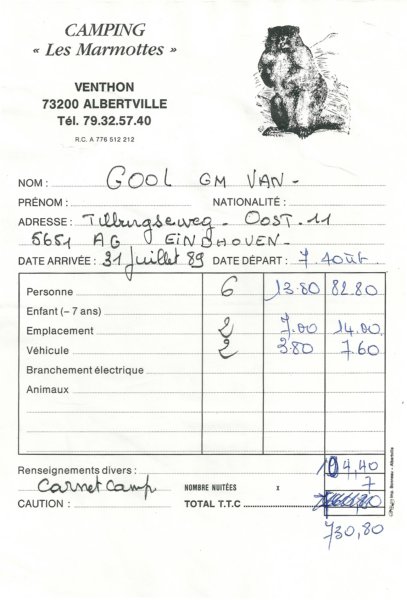 CAMPING
« Les Marmottes »
VENTHON
73200 ALBERTVILLE
Tél. 79.32.57.40
R.C. A 776 512 212
NOM : GOOL GM VAN -
PRÉNOM : NATIONALITÉ :
ADRESSE : Tilburgseweg - OOST. 11
5651 AG EINDHOVEN -
DATE ARRIVÉE : 31 juillet 89 DATE DÉPART : 7 Août
Personne 6 13.80 82.80
Enfant (- 7 ans)
Emplacement 2 7.00 14.00
Véhicule 2 3.80 7.60
Branchement électrique
Animaux
Renseignements divers : 104,40
Carnet Camp NOMBRE NUITÉES x 7
CAUTION : TOTAL T.T.C
730,80